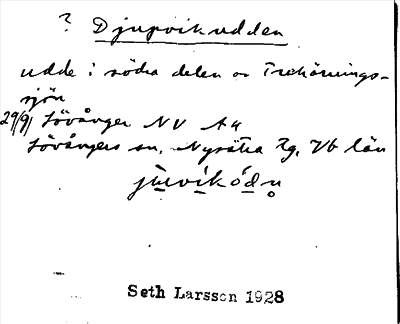 ? Djupvikudden
udde i södra delen av Trehörnings-
sjön
29/91 Lövånger NV A4
Lövångers sn. Nysätra tg. Vb län
juvikódn
Seth Larsson 1928